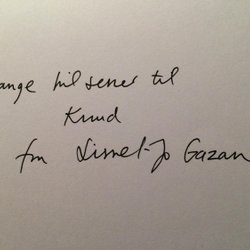 ange hilsener til
Knud
fra Sissel-Jo Gazan